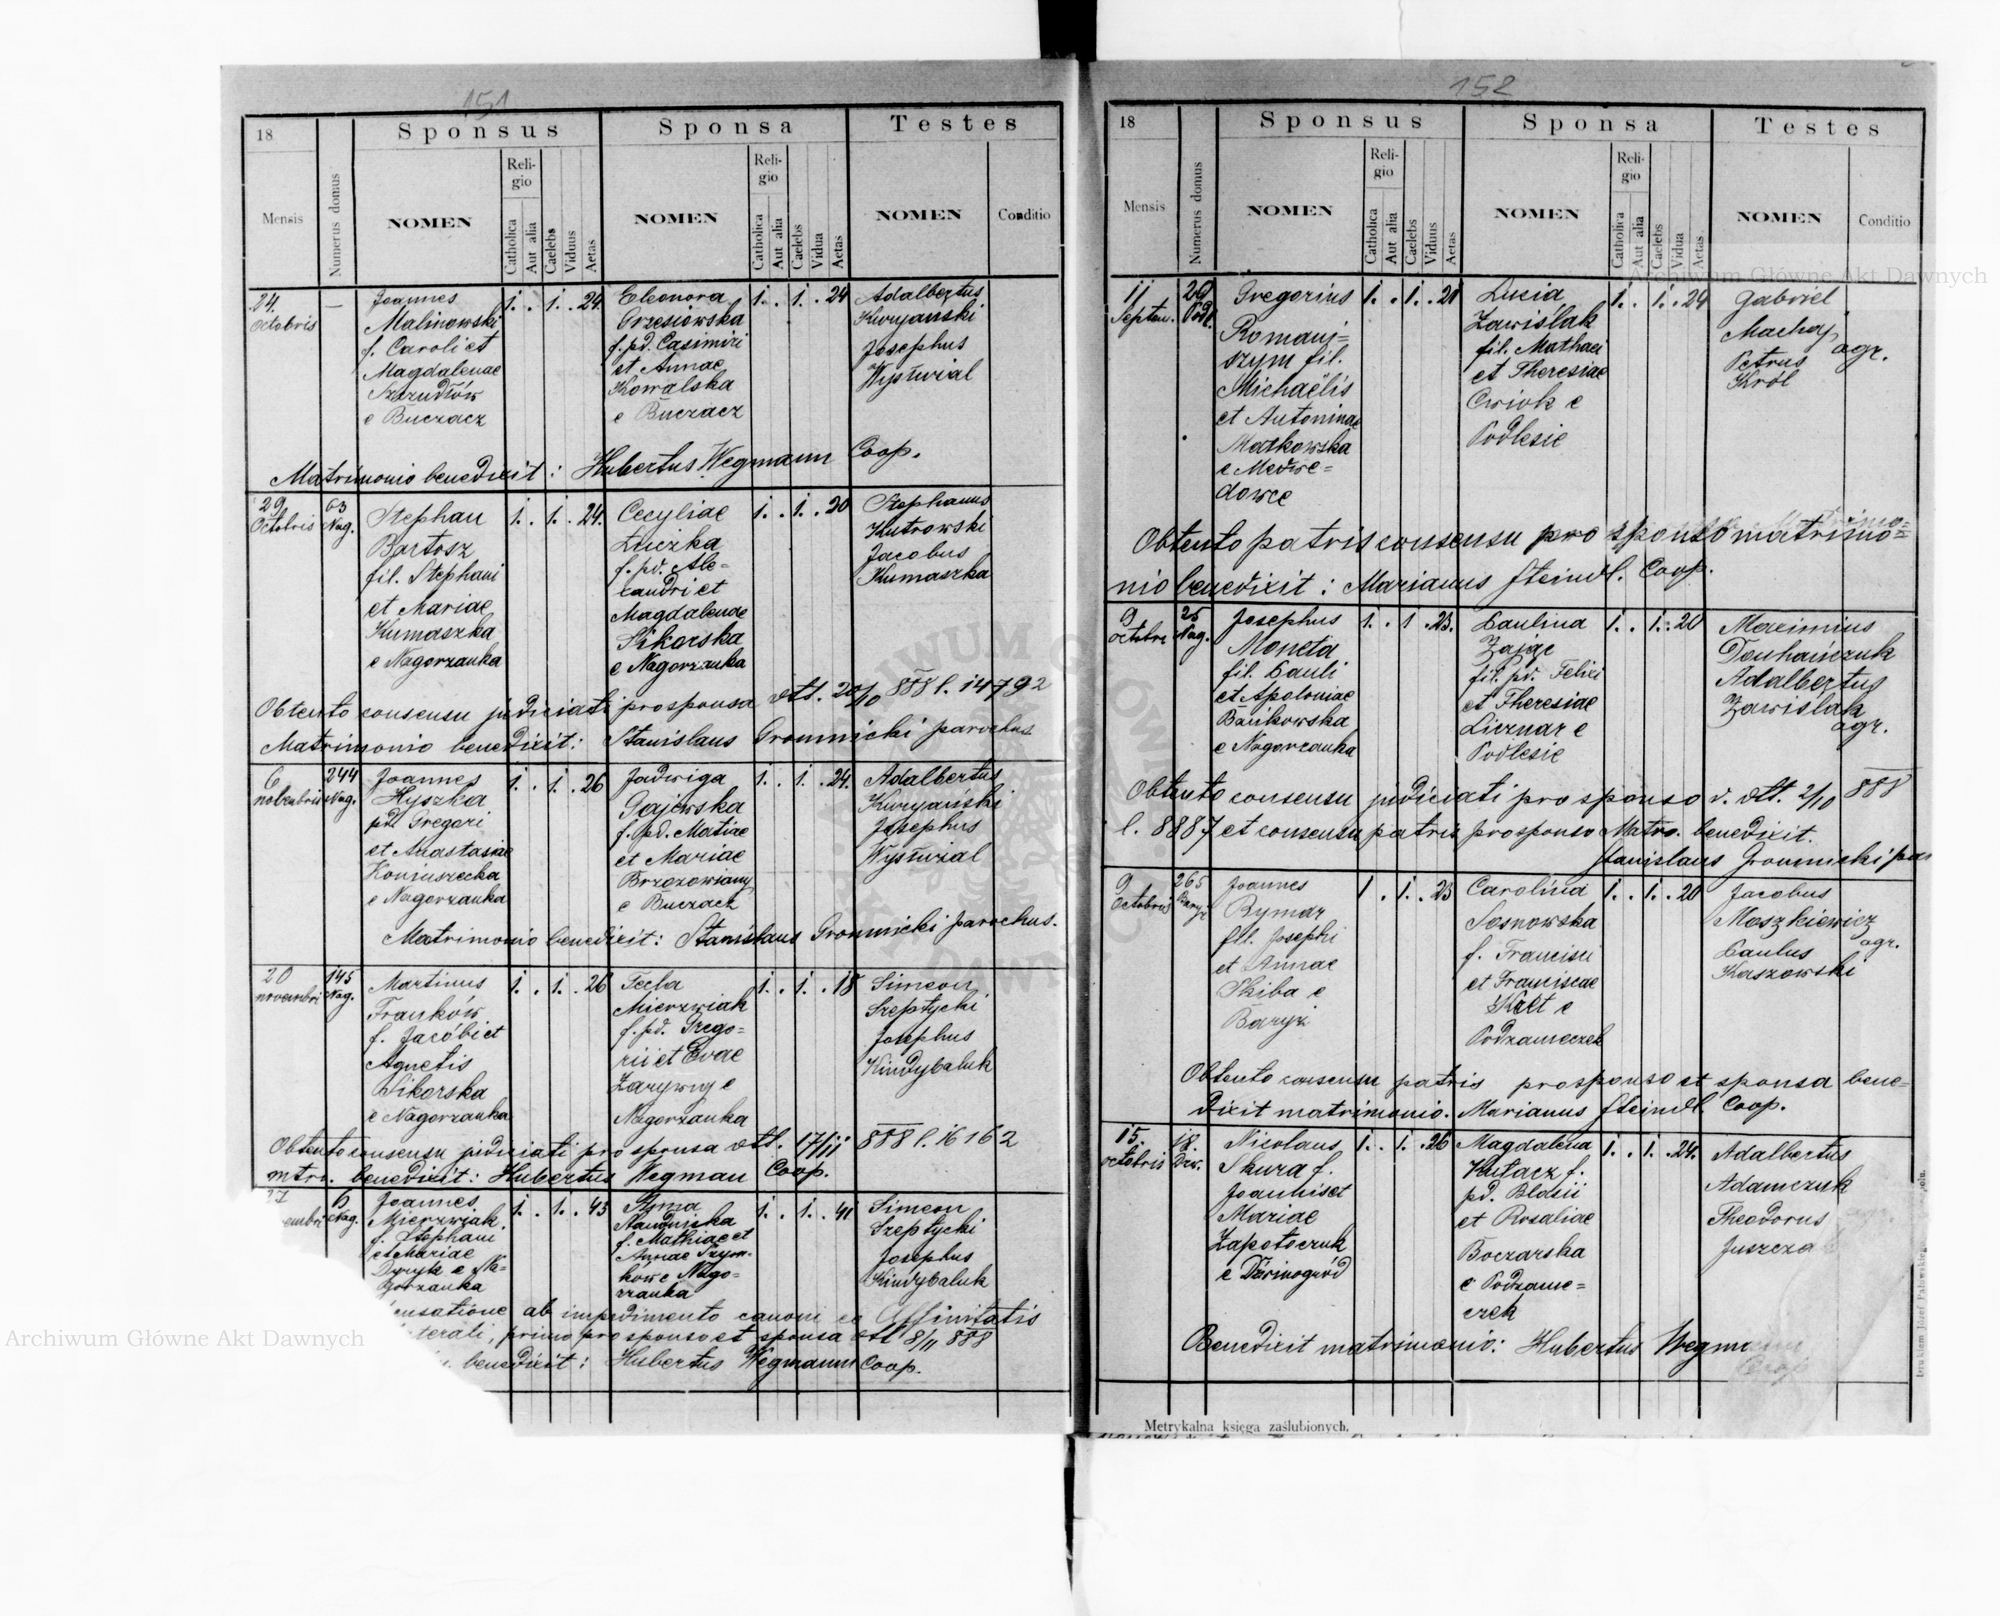 151
18
Sponsus
Sponsa
Testes
Mensis
Numerus domus
NOMEN
Religio
Catholica
Aut alia
Caelebs
Viduus
Aetas
NOMEN
Religio
Catholica
Aut alia
Caelebs
Vidua
Aetas
NOMEN
Conditio
24.
Octobris
—
Joannes
Malinowski
f. Caroli et
Magdalenae
e Buczacz
1. . 1. . 24.
Eleonora
Grzesiowska
f. pd. Casimiri
et Annae
Kowalska
e Buczacz
1. . 1. . 24
Adalbertus
Kuryanski
Josephus
Matrimonio benedixit: Hubertus Wegmann Coop.
29
Octobris
63
Nag.
Stephan
Bartosz
fil. Stephani
et Mariae
Kumaszka
e Nagorzanka
1. . 1. . 24.
Cecyliae
Luczka
f. pd. Ale-
xandri et
Magdalenae
Sikorska
e Nagorzanka
1. . 1. . 20
Stephanus
Kutrowski
Jacobus
Kumaszka
Obtento consensu judiciati pro sponsa dtt. 20/10 888 l. 14792
Matrimonio benedixit: Stanislaus Gromnicki parochus
6
novembris
244
Nag.
Joannes
Hyszka
pd. Gregori
et Anastasiae
e Nagorzanka
1. . 1. . 26
Jadwiga
Gajewska
f. pd. Matiae
et Mariae
Brzozowiany
e Buczacz
1. . 1. . 24.
Adalbertus
Kuryański
Josephus
Matrimonio benedixit: Stanislaus Gromnicki parochus.
20
novembri
145
Nag.
Martinus
Franków
f. Jacóbi et
Agnetis
Sikorska
e Nagorzanka
1. . 1. . 26
Tecla
Mierzwiak
f. pd. Grego-
rii et Evae
Zarywny e
Nagorzanka
1. . 1. . 18
Simeon
Szeptycki
Josephus
Kindybaluk
Obtento consensu judiciati pro sponsa dtt. 17/11 888 l. 16162
mtri. benedixit: Hubertus Wegman Coop.
embri
6
Nag.
Joannes
Mierzwiak
f. Stephani
et Mariae
Dyryk e Na-
gorzanka
1. . 1. . 43
Anna
f. Mathiae et
Annae Szym-
kow e Nago-
rzanka
1. . 1. . 41
Simeon
Szeptycki
Josephus
Kindybaluk
ensatione ab impedimento canoni co Affinitatis
laterali, primo pro sponso et sponsa dtt 8/11 888
benedixit: Hubertus Wegmann Coop.
152
18
Sponsus
Sponsa
Testes
Mensis
Numerus domus
NOMEN
Religio
Catholica
Aut alia
Caelebs
Viduus
Aetas
NOMEN
Religio
Catholica
Aut alia
Caelebs
Vidua
Aetas
NOMEN
Conditio
11
Septem.
20
Podl.
Gregorius
Romani=
szym fil.
Michaëlis
et Antoninae
Markowska
e Medwe=
dowce
1. . 1. . 21
Lucia
Zawislak
fil. Mathaei
et Theresiae
Cwiok e
Podlesie
1. . 1. . 24
Gabriel
Machaj
Petrus
Król
agr.
Obtento patris consensu pro sponso matrimo=
nio benedixit: Marianus Steindl. Coop.
9
octobri
25
Nag.
Josephus
Moneta
fil. Pauli
et Apoloniae
Bańkowska
e Nagorzanka
1. . 1 . 23.
Paulina
Zając
fil. pd. Felici
et Theresiae
Licznar e
Podlesie
1. . 1. . 20
Maximius
Douhańczuk
Adalbertus
Zawislak
agr.
Obtento consensu judiciati pro sponso d. dtt. 2/10 888
l. 8887 et consensu patris pro sponso Matro. benedixit.
Stanislaus Gromnicki par
9
Octobris
265
Barysz
Joannes
Rymar
fil. Josephi
et Annae
Skiba e
Barysz
1 . 1. . 23
Carolina
Sosnowska
f. Francisci
et Franciscae
Kält e
Podzameczek
1. . 1. . 20
Jacobus
Moszkiewicz
Paulus
Kaszowski
agr.
Obtento consensu patris pro sponso et sponsa bene=
dixit matrimonio. Marianus Steindl. Coop.
15.
octobris
18.
Dzw.
Nicolaus
Skura f.
Joannis et
Mariae
Zapotoczuk
e Dźwinogród
1. . 1. . 26
Magdalena
Kutacz f.
pd. Blasii
et Rosaliae
Boczarska
e Podzame=
czek
1. . 1. . 24.
Adalbertus
Adamczuk
Theodorus
Juszcza
Benedixit matrimonio: Hubertus Wegmann
Coop
Metrykalna księga zaślubionych.
Archiwum Główne Akt Dawnych
Archiwum Główne Akt Dawnych